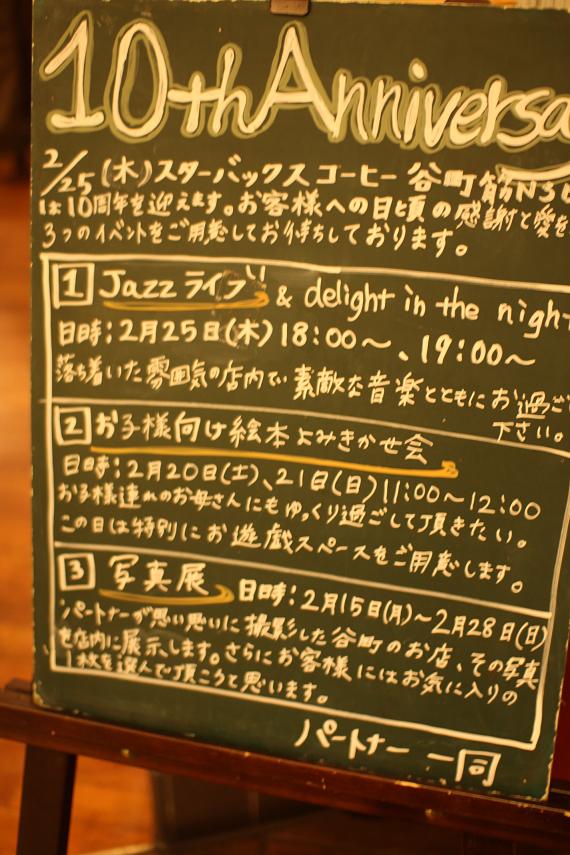 10th Anniversa
2/25(木)スターバックス コーヒー 谷町筋NSビ
は10周年を迎えます。お客様への日頃の感謝と愛を
3つのイベントをご用意してお待ちしております。
1 Jazz ライブ & delight in the night
日時:2月25日(木)18:00～、19:00～
落ち着いた雰囲気の店内で素敵な音楽とともにお過ご
下さい。
2 お子様向け絵本よみきかせ会
日時:2月20日(土)、21日(日)11:00～12:00
お子様連れのお母さんにもゆっくり過ごして頂きたい。
この日は特別にお遊戯スペースをご用意します。
3 写真展 日時:2月15日(月)～2月28日(日)
パートナーが思い思いに撮影した谷町のお店、その写真
を店内に展示します。さらにお客様にはお気に入りの
1枚を選んで頂こうと思います。
パートナー 一同